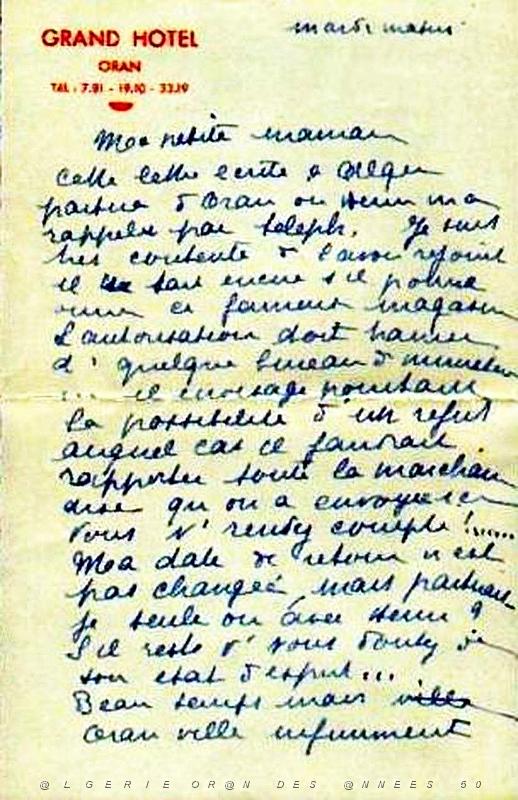 GRAND HOTEL
ORAN
TÉL : 7.91 - 19.10 - 33.19
mardi matin
Ma petite maman
cette lettre écrite d'Alger
partira d'Oran ou Henri m'a
rappelée par téléph. Je suis
très contente de l'avoir rejoint
il ne sait encore s'il pourra
ouvrir ce fameux magasin
L'autorisation doit
d'quelque bureau de
... il envisage pourtant
la possibilité d'un refus
auquel cas il faudrait
rapporter toute la marchan
dise qu'on a envoyée
vous v' rendez compte !.....
Ma date de retour n'est
pas changée mais partirai
je seule ou avec Henri ?
S'il reste v' vous doutez de
son état d'esprit...
Beau temps mais
Oran ville infiniment
@LGERIE OR@N DES @NNEES 50